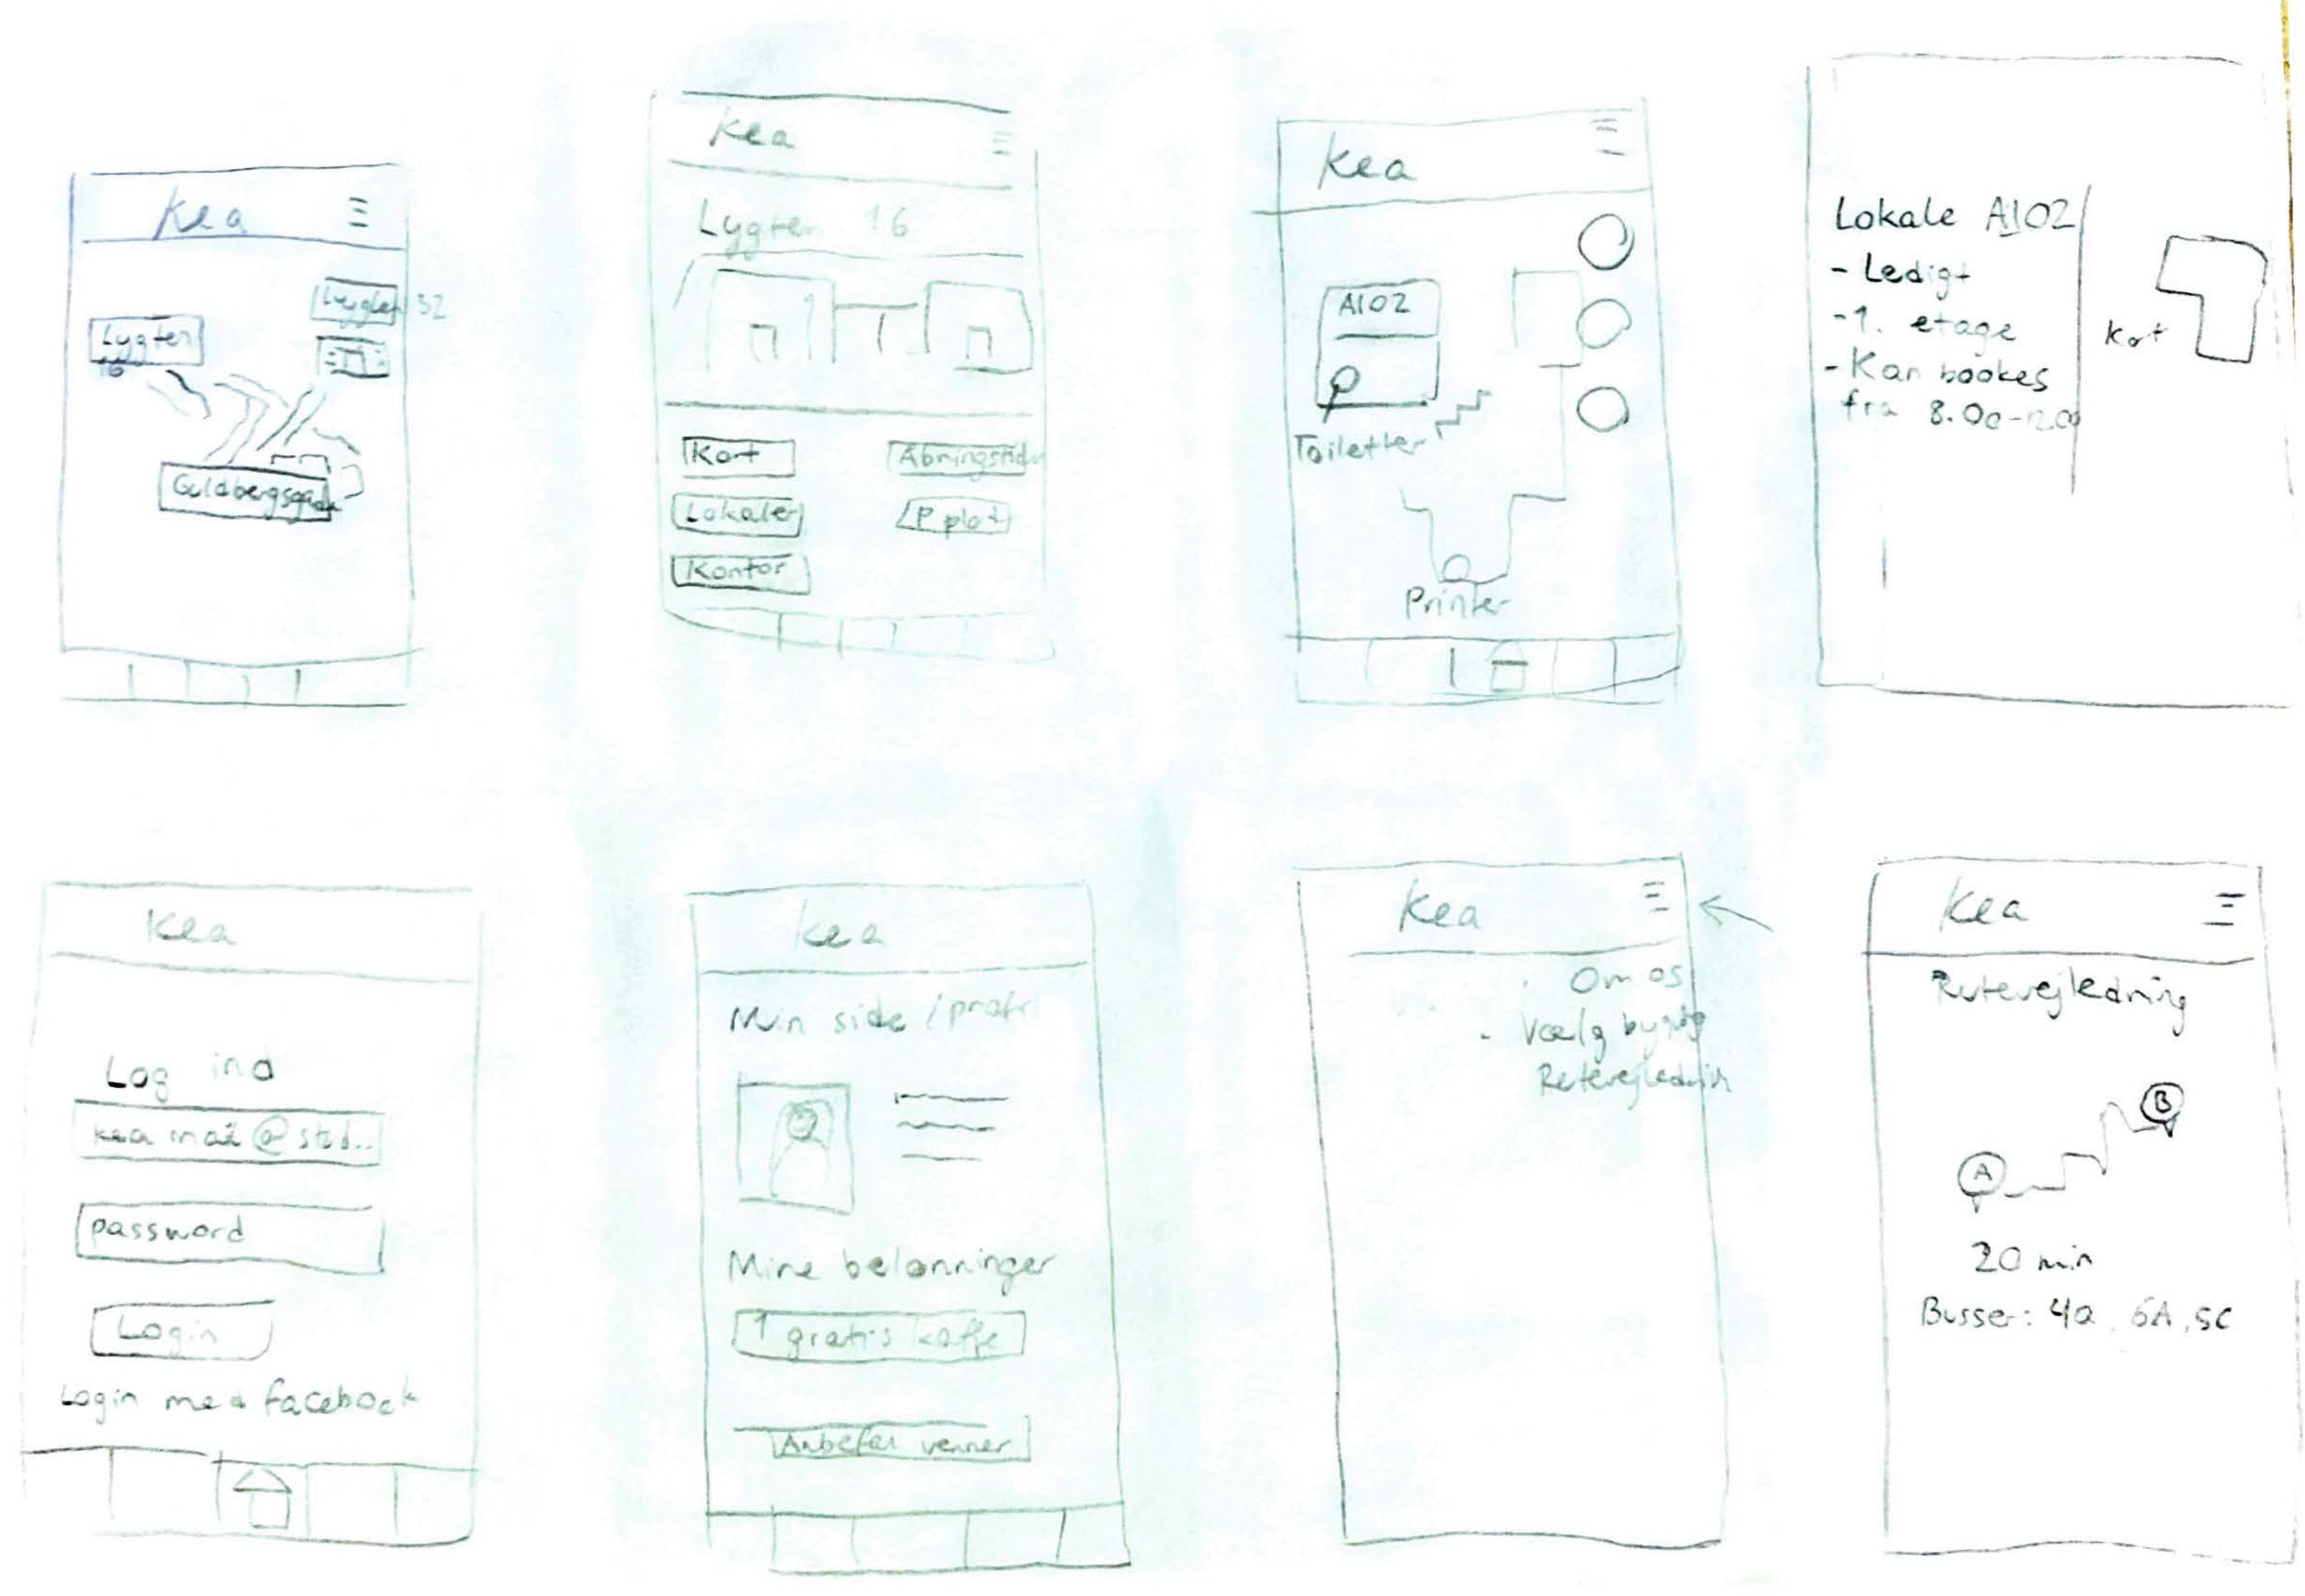 Kea
Lygten
16
Lygten 32
Guldbergsgade
Kea
Lygten 16
Kort
Lokaler
Kontor
Åbningstider
P plads
Kea
A102
Toiletter
Printer
Lokale A102
- Ledigt
- 1. etage
- Kan bookes
fra 8.00-12.00
Kort
Kea
Log ind
kea mail@stud..
password
Login
Login med facebook
Kea
Min side / profil
Mine belønninger
1 gratis kaffe
Anbefal venner
Kea
· Om os
- Vælg bygning
Rutevejledning
Kea
Rutevejledning
A
B
20 min
Busser: 4a, 6A, 5C